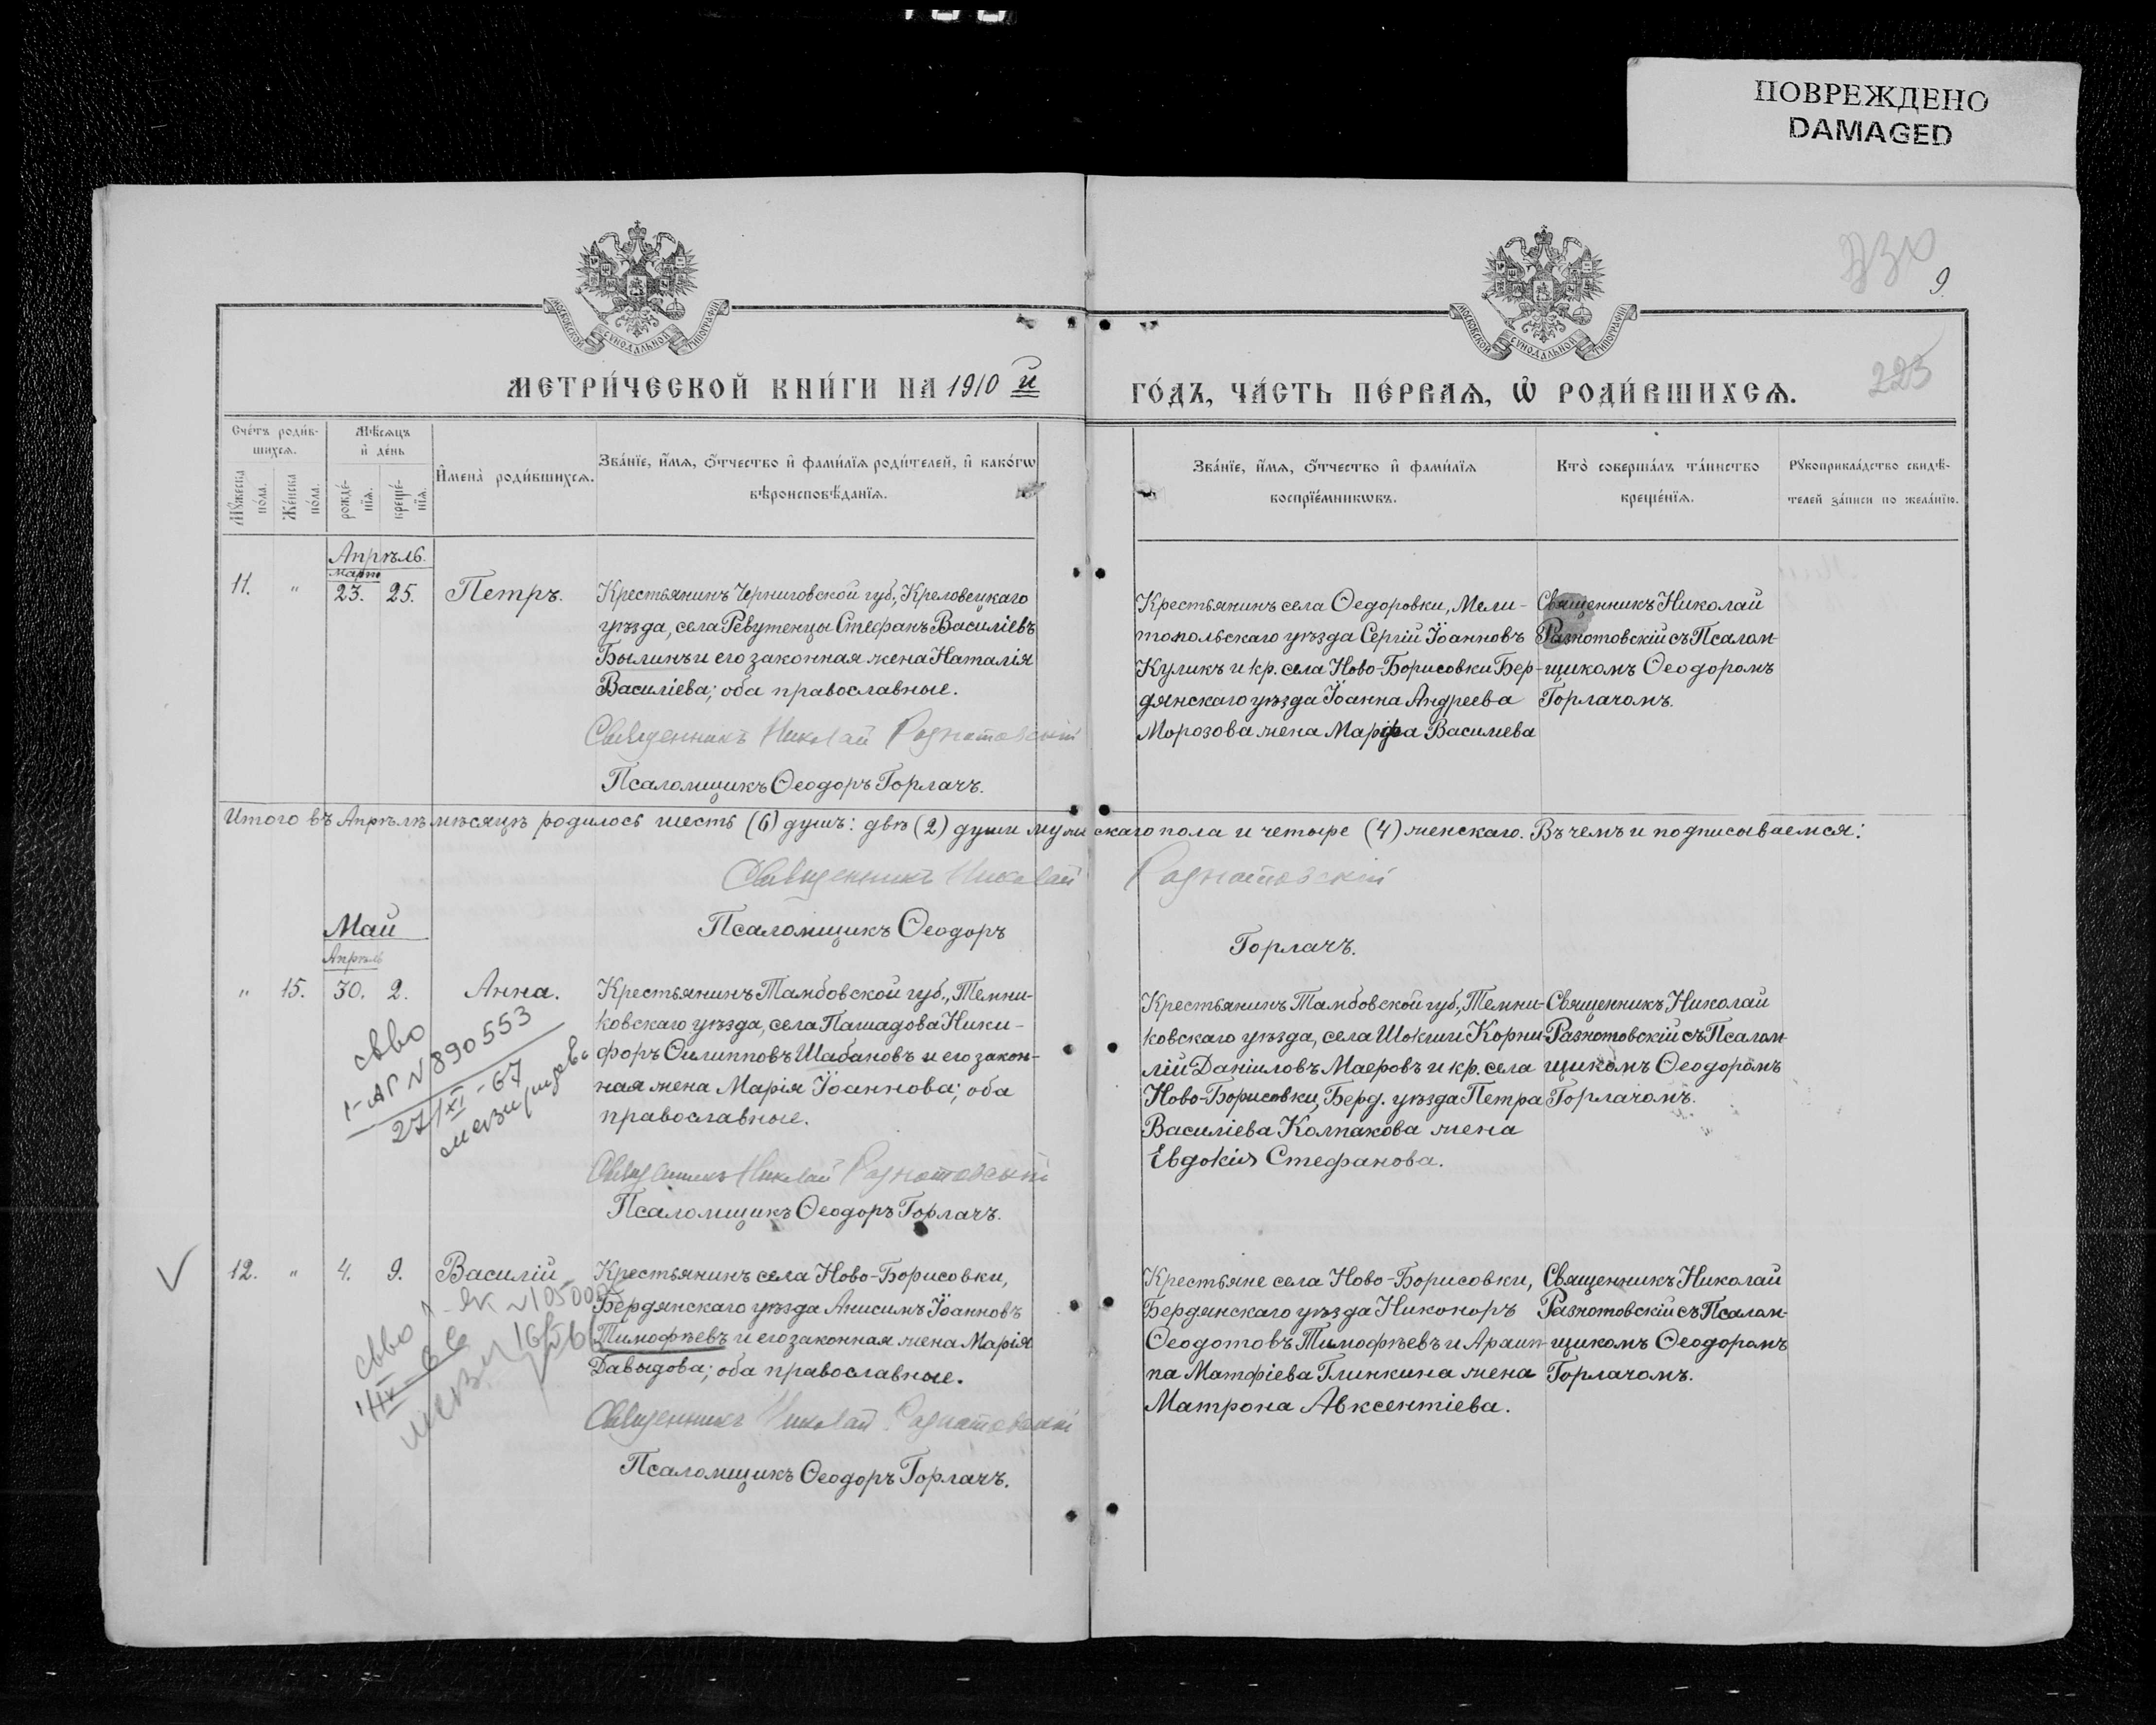 ПОВРЕЖДЕНО
DAMAGED
9.
223
МОСКОВСКОЙ СѴНОДАЛЬНОЙ ТИПОГРАФІИ
МОСКОВСКОЙ СѴНОДАЛЬНОЙ ТИПОГРАФІИ
МЕТРИ́ЧЕСКОЙ КНИ́ГИ НА 1910 й
ГО́ДЪ, ЧА́СТЬ ПЕ́РВАѦ, Ѡ҆ РОДИ́ВШИХСѦ.
Сче́тъ роди́в-
шихсѧ.
Мѣ́сѧцъ
и҆ де́нь
Мꙋ́жеска по́ла.
Же́нска по́ла.
рожде́-нїѧ.
креще́-нїѧ.
И҆мена̀ роди́вшихсѧ.
Зва́нїе, и҆́мѧ, ѻ҆́тчество и҆ фами́лїѧ роди́телей, и҆ како́гѡ
вѣроисповѣ́данїѧ.
Зва́нїе, и҆́мѧ, ѻ҆́тчество и҆ фами́лїѧ
воспрїе́мникѡвъ.
Кто̀ соверша́лъ та́инство
креще́нїѧ.
Рꙋкоприкла́дство свидѣ́-
телей за́писи по жела́нїю.
Апрѣль.
Мартъ
11. " 23. 25. Петръ.
Крестьянинъ Черниговской губ., Кролевецкаго
уѣзда, села Ревутенцы Стефанъ Василіевъ
Былинъ и его законная жена Наталія
Василіева; оба православные.
Священникъ Николай Разнотовскій
Псаломщикъ Ѳеодоръ Горлачъ.
Крестьянинъ села Ѳедоровки, Мели-
топольскаго уѣзда Сергій Іоанновъ
Куликъ и кр. села Ново-Борисовки Бер-
дянскаго уѣзда Іоанна Андреева
Морозова жена Марфа Васильева
Священникъ Николай
Разнотовскій съ Псалом-
щикомъ Ѳеодоромъ
Горлачомъ.
Итого въ Апрѣлѣ мѣсяцѣ родилось шесть (6) душъ: двѣ (2) души мужескаго пола и четыре (4) женскаго. Въ чемъ и подписываемся:
Священникъ Николай Разнотовскій
Псаломщикъ Ѳеодоръ Горлачъ.
Май
Апрѣль
" 15. 30. 2. Анна.
Крестьянинъ Тамбовской губ., Темни-
ковскаго уѣзда, села Пашадова Ники-
форъ Филипповъ Шабановъ и его закон-
ная жена Марія Іоаннова; оба
православные.
Священникъ Николай Разнотовскій
Псаломщикъ Ѳеодоръ Горлачъ.
свво
I-АГ N 890553
27/XI-67
Крестьянинъ Тамбовской губ., Темни-
ковскаго уѣзда, села Шокши Корни-
лій Даніиловъ Маеровъ и кр. села
Ново-Борисовки, Берд. уѣзда Петра
Василіева Колпакова жена
Евдокія Стефанова.
Священникъ Николай
Разнотовскій съ Псалом-
щикомъ Ѳеодоромъ
Горлачомъ.
12. " 4. 9. Василій
Крестьянинъ села Ново-Борисовки,
Бердянскаго уѣзда Анисимъ Іоанновъ
Тимофѣевъ и его законная жена Марія
Давыдова; оба православные.
Священникъ Николай Разнотовскій
Псаломщикъ Ѳеодоръ Горлачъ.
свво
Крестьяне села Ново-Борисовки,
Бердянскаго уѣзда Никоноръ
Ѳеодотовъ Тимофѣевъ и Архип-
па Матфіева Глинкина жена
Матрона Авксентіева.
Священникъ Николай
Разнотовскій съ Псалом-
щикомъ Ѳеодоромъ
Горлачомъ.